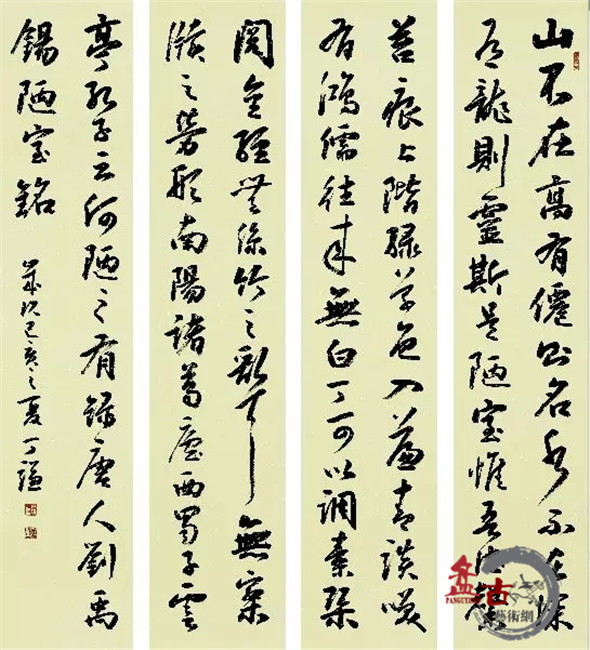 山不在高有僊則名水不在深
有龍則靈斯是陋室惟吾德馨
苔痕上階緑草色入簾青談笑
有鴻儒往来無白丁可以調素琴
閲金經無絲竹之亂耳無案
牘之勞形南陽諸葛廬西蜀子雲
亭孔子云何陋之有録唐人劉禹
錫陋室銘 歲次己亥之夏丁謙
盘古
藝術網